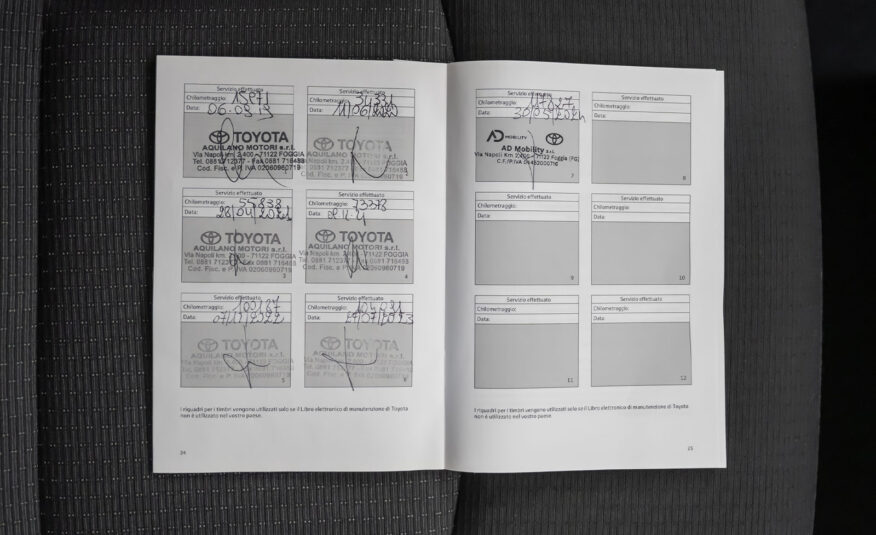 Servizio effettuato
Chilometraggio: 15871
Data: 06.09.19
TOYOTA
AQUILANO MOTORI s.r.l.
Via Napoli km. 2,400 - 71122 FOGGIA
Tel. 0881 712377 - Fax 0881 716488
Cod. Fisc. e P. IVA 02060960719
Servizio effettuato
Chilometraggio:
Data: 11/06/2020
TOYOTA
AQUILANO MOTORI s.r.l.
Via Napoli km. 2,400 - 71122 FOGGIA
Tel. 0881 712377 - Fax 0881 716488
Cod. Fisc. e P. IVA 02060960719
Servizio effettuato
Chilometraggio: 55838
Data: 28/04/2021
TOYOTA
AQUILANO MOTORI s.r.l.
Via Napoli km. 2,400 - 71122 FOGGIA
Tel. 0881 712377 - Fax 0881 716488
Cod. Fisc. e P. IVA 02060960719
3
Servizio effettuato
Chilometraggio: 73378
Data:
TOYOTA
AQUILANO MOTORI s.r.l.
Via Napoli km. 2,400 - 71122 FOGGIA
Tel. 0881 712377 - Fax 0881 716488
Cod. Fisc. e P. IVA 02060960719
4
Servizio effettuato
Chilometraggio: 100187
Data: 07/11/2022
TOYOTA
AQUILANO MOTORI s.r.l.
Via Napoli km 2,400 - 71122 FOGGIA
Tel. 0881 712377 - Fax 0881 716488
Cod. Fisc. e P. IVA 02060960719
5
Servizio effettuato
Chilometraggio:
Data: 27/07/2023
TOYOTA
AQUILANO MOTORI s.r.l.
6
I riquadri per i timbri vengono utilizzati solo se il Libro elettronico di manutenzione di Toyota
non è utilizzato nel vostro paese.
24
Servizio effettuato
Chilometraggio:
Data: 30/05/2024
AD MOBILITY
AD Mobility s.r.l.
Via Napoli Km 2,400 - 71122 Foggia (FG)
7
Servizio effettuato
Chilometraggio:
Data:
8
Servizio effettuato
Chilometraggio:
Data:
9
Servizio effettuato
Chilometraggio:
Data:
10
Servizio effettuato
Chilometraggio:
Data:
11
Servizio effettuato
Chilometraggio:
Data:
12
I riquadri per i timbri vengono utilizzati solo se il Libro elettronico di manutenzione di Toyota
non è utilizzato nel vostro paese.
25